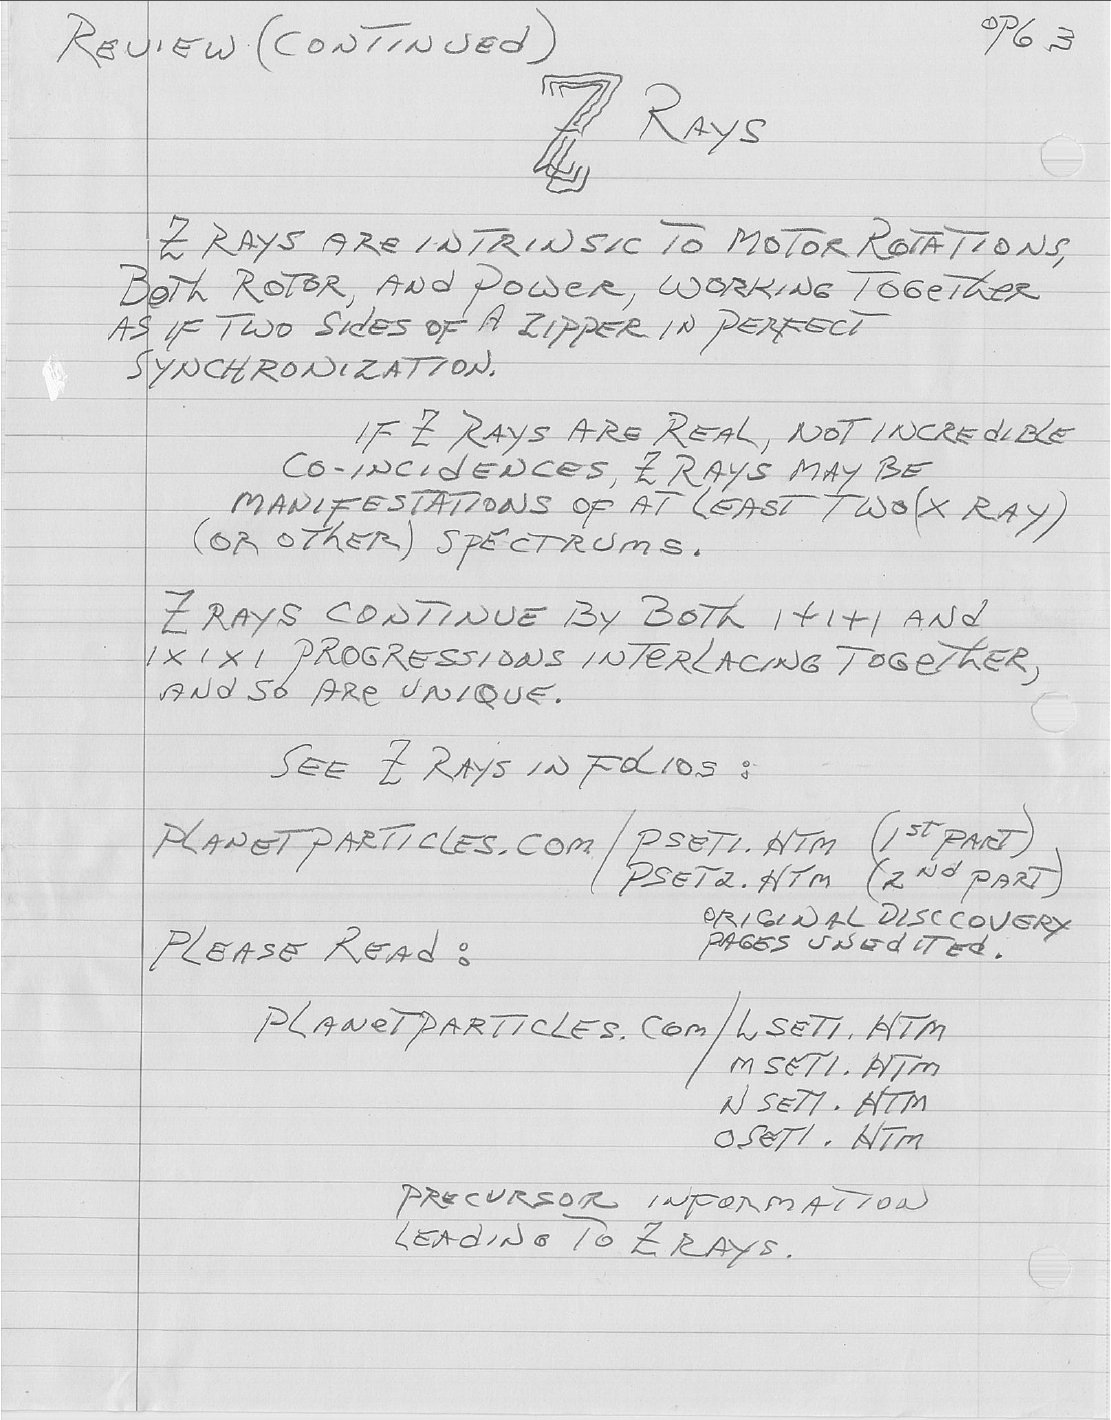 REVIEW (CONTINUED)
PG 3
Z RAYS
Z RAYS ARE INTRINSIC TO MOTOR ROTATIONS,
BOTH ROTOR, AND POWER, WORKING TOGETHER
AS IF TWO SIDES OF A ZIPPER IN PERFECT
SYNCHRONIZATION.
IF Z RAYS ARE REAL, NOT INCREDIBLE
CO-INCIDENCES, Z RAYS MAY BE
MANIFESTATIONS OF AT LEAST TWO (X RAY)
(OR OTHER) SPECTRUMS.
Z RAYS CONTINUE BY BOTH 1+1+1 AND
1X1X1 PROGRESSIONS INTERLACING TOGETHER,
AND SO ARE UNIQUE.
SEE Z RAYS IN FOLIOS:
PLANETPARTICLES.COM/PSET1.HTM (1ST PART)
/PSET2.HTM (2ND PART)
ORIGINAL DISCCOVERY
PAGES UNEDITED.
PLEASE READ:
PLANETPARTICLES.COM/LSET1.HTM
/MSET1.HTM
NSET1.HTM
OSET1.HTM
PRECURSOR INFORMATION
LEADING TO Z RAYS.